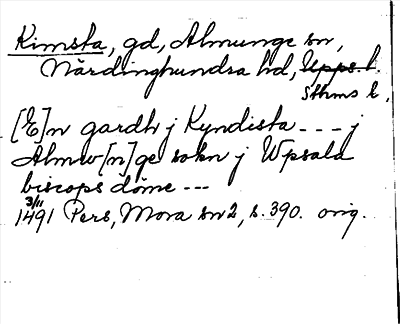 Kimsta, gd, Almunge sn,
Närdinghundra hd, Upps. l.
Sthms l,
[E]n gardh j Kyndista --- j
Almw[n]ge sokn j Wpsala
biscops döme ---
3/11
1491 Pers, Mora sn 2, s. 390. orig.